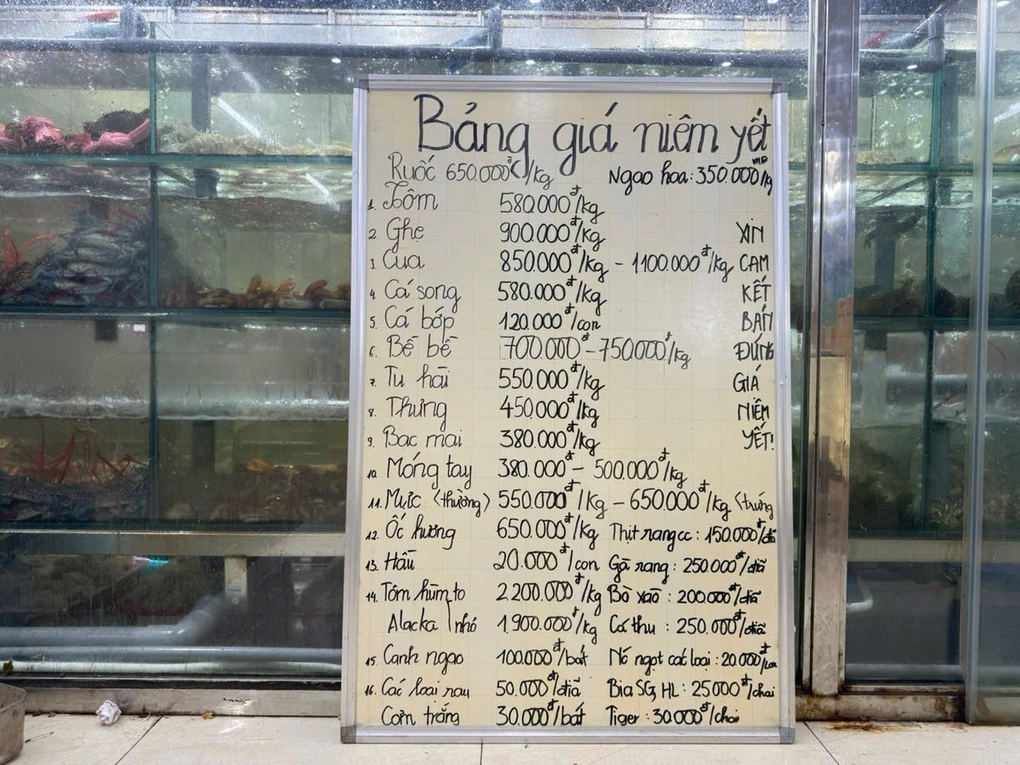 Bảng giá niêm yết
Ruốc 650.000đ/kg Ngao hoa: 350.000/kg
1. Tôm 580.000đ/kg
2. Ghẹ 900.000đ/kg XIN
3. Cua 850.000đ/kg - 1100.000đ/kg CAM
4. Cá song 580.000đ/kg KẾT
5. Cá bóp 120.000đ/con BÁN
6. Bề bề 700.000đ - 750.000đ/kg ĐÚNG
7. Tu hài 550.000đ/kg GIÁ
8. Thưng 450.000đ/kg NIÊM
9. Bạc mai 380.000đ/kg YẾT!
10. Móng tay 380.000đ - 500.000đ/kg
11. Mực (thường) 550.000đ/kg - 650.000đ/kg (trứng
12. Ốc hương 650.000đ/kg Thịt rang cc: 150.000đ/đĩa
13. Hầu 20.000đ/con Gà rang: 250.000đ/đĩa
14. Tôm hùm to 2.200.000đ/kg Bò xào: 200.000đ/đĩa
Alacka nhỏ 1.900.000đ/kg Cá thu: 250.000đ/đĩa
15. Canh ngao 100.000đ/bát Nc ngọt các loại: 20.000đ/lon
16. Các loại rau 50.000đ/đĩa Bia SG, HL: 25000đ/chai
Cơm trắng 30.000đ/bát Tiger: 30.000đ/chai